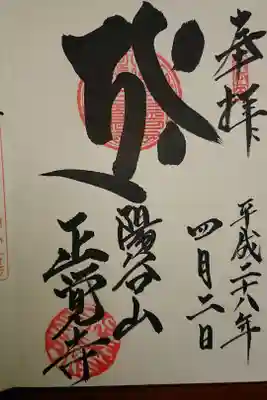 奉拝
平成二十八年
四月二日
陽谷山
正覚寺